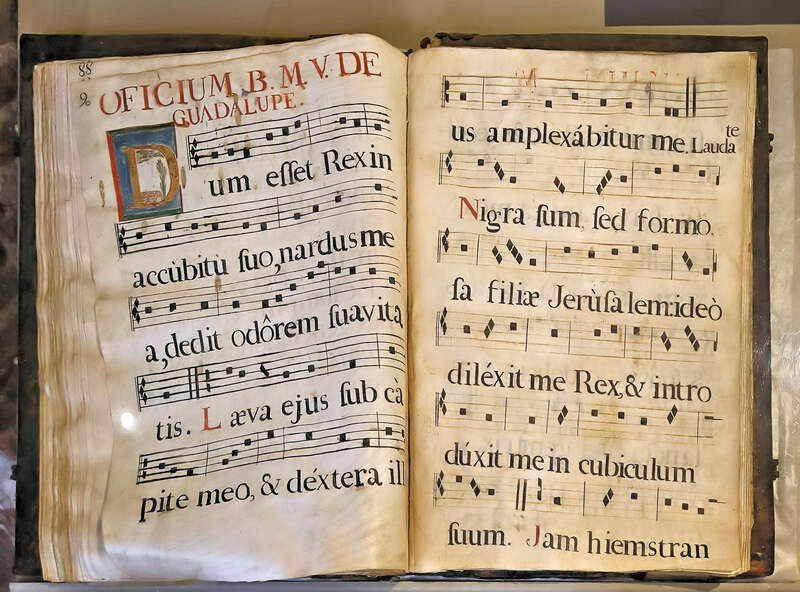 88
OFICIUM. B. M. V. DE
GUADALUPE.
Dum eſſet Rex in
accùbitù ſuo, nardus me
a, dedit odôrem ſuavita
tis. Læva ejus ſub cà
pite meo, & déxtera ill
us amplexábitur me. Laudate
Nigra ſum, ſed formo.
ſa filiæ Jerùſalem: ideò
diléxit me Rex, & intro
dúxit me in cubiculum
ſuum. Jam hiems tran